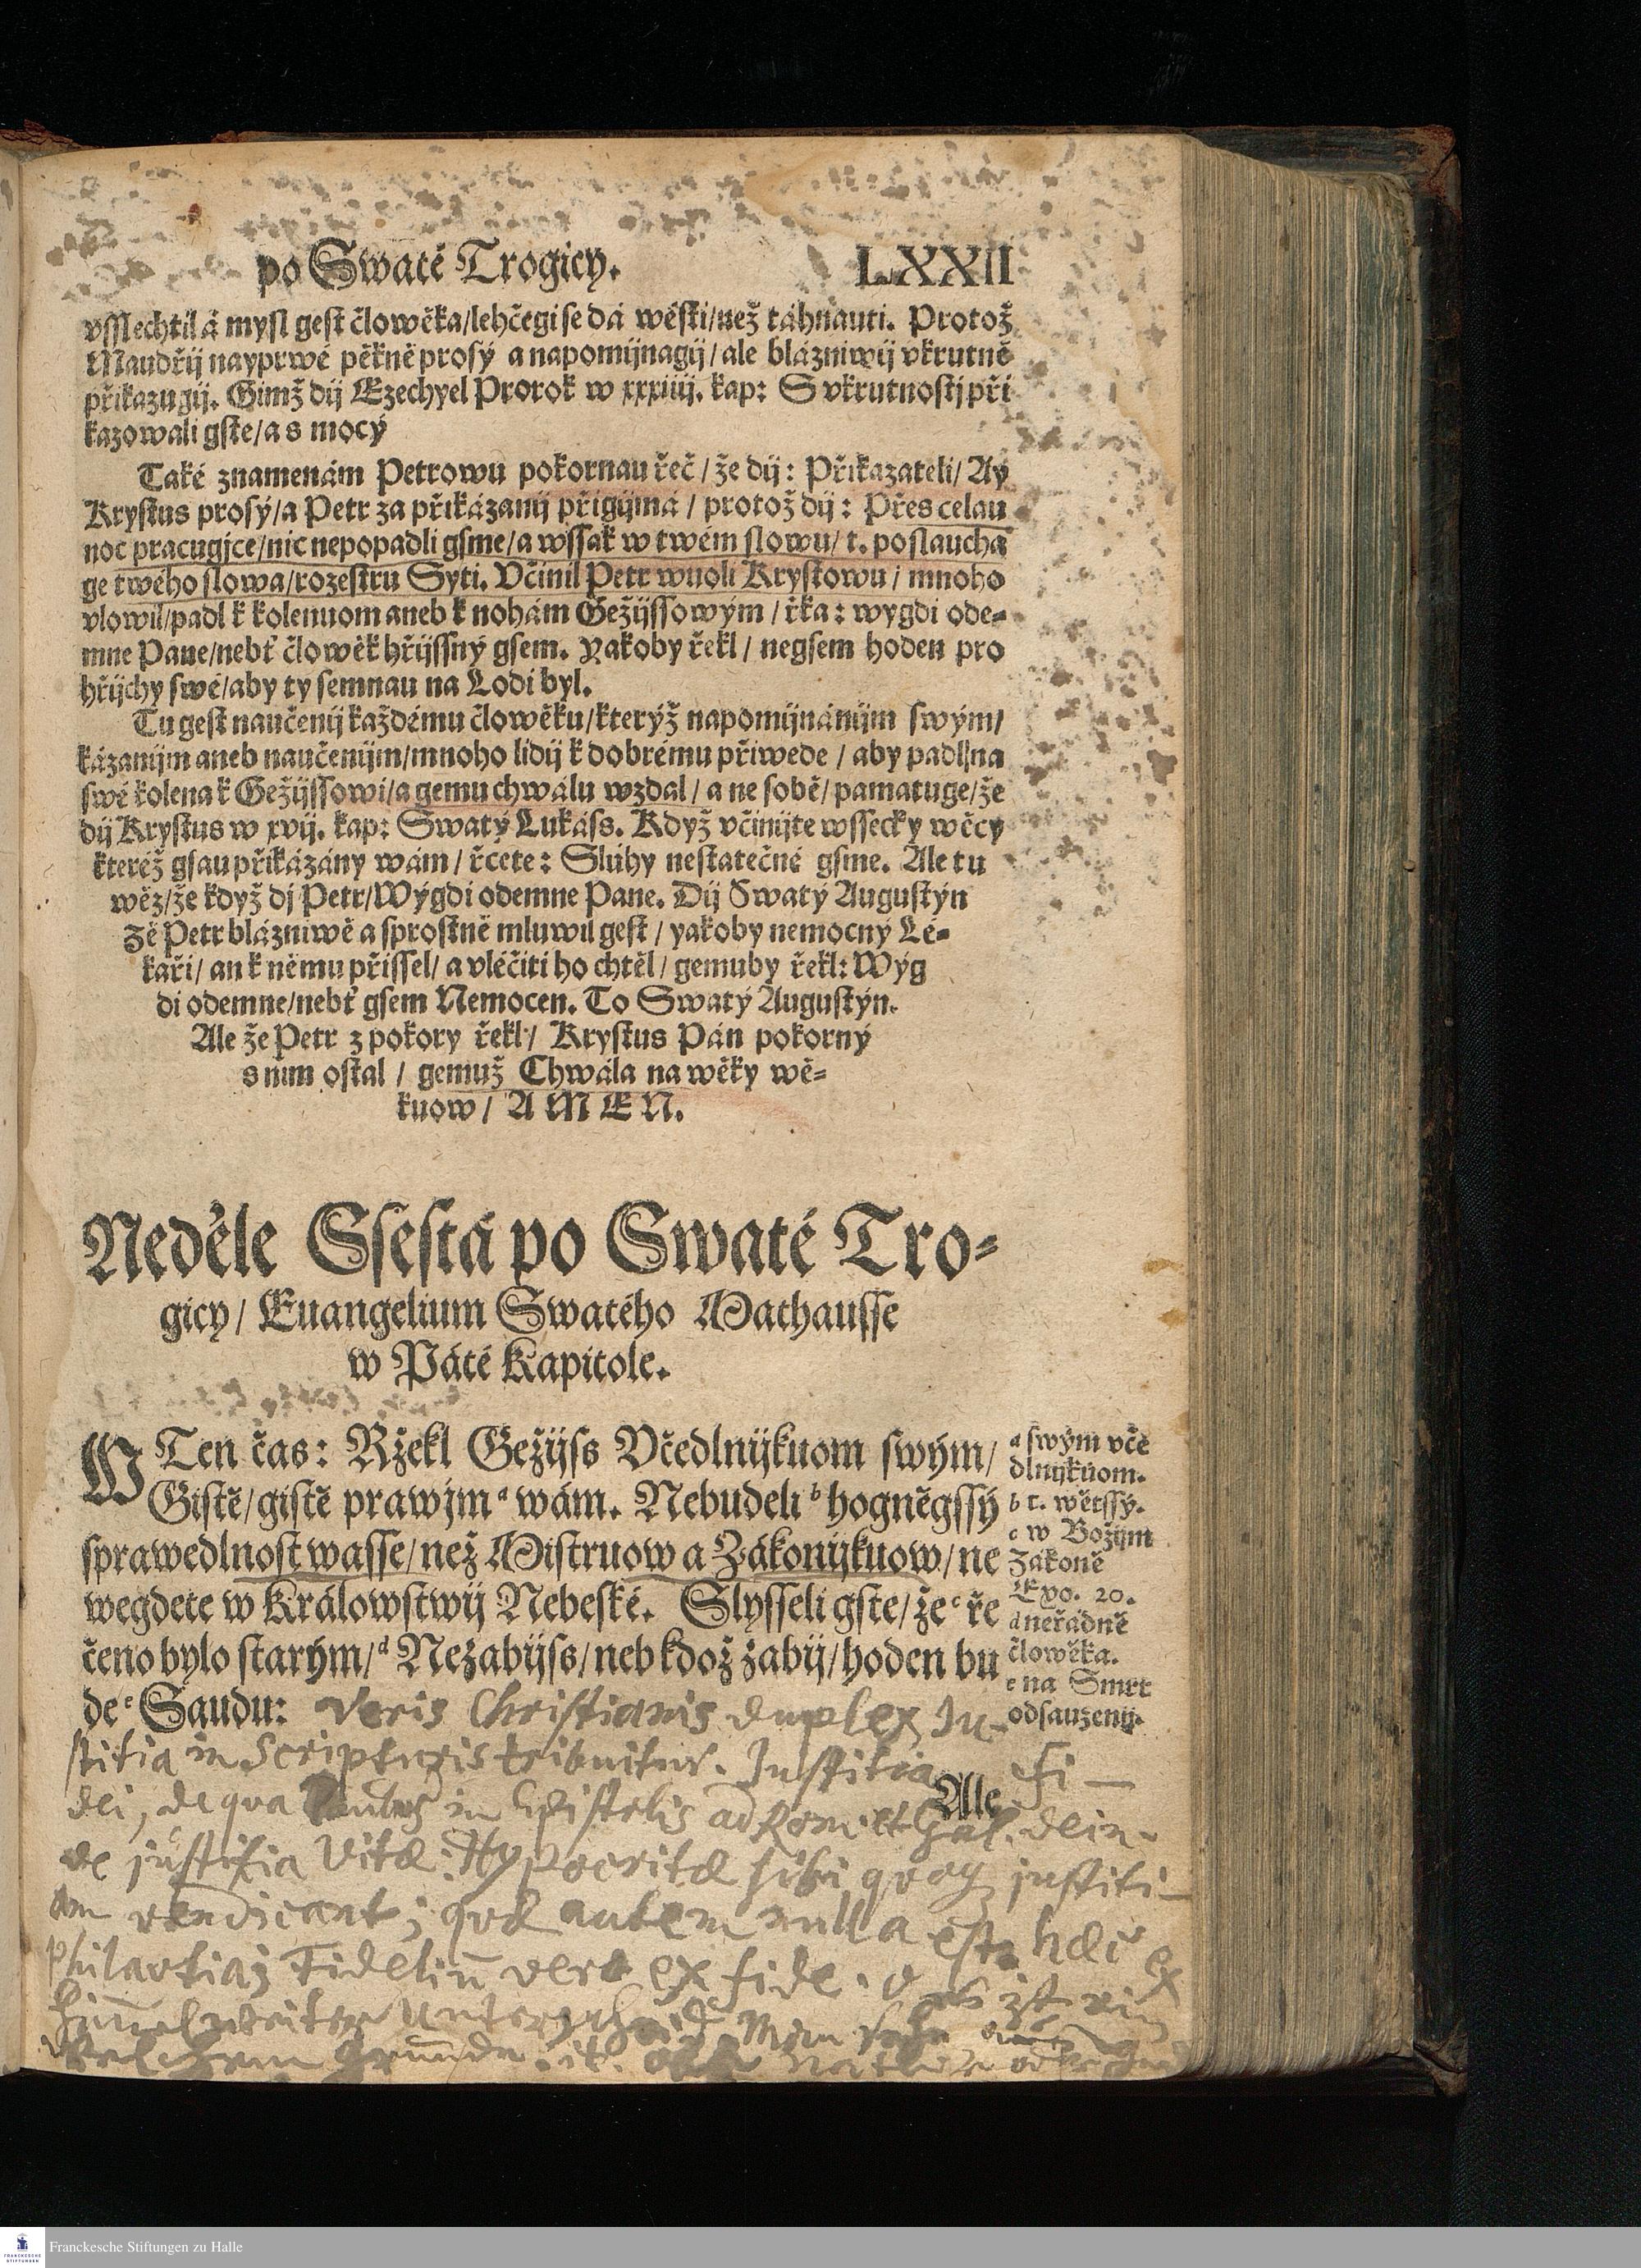 po Swaté Trogicy. LXXII
vsslechtilá mysl gest člowěka/lehčegi se dá wésti/než táhnauti. Protož
Maudřij nayprwé pěkně prosý a napomijnagij/ ale blázniwij vkrutně
přikazugij. Gimž dij Ezechyel Prorok w xxxiiij. kap: S vkrutnostj při
kazowali gste/a s mocý
Také znamenám Petrowu pokornau řeč/ že dij: Přikazateli/ Ay
Krystus prosý/a Petr za přikázanij přigijmá/ protož dij: Přes celau
noc pracugjce/nic nepopadli gsme/a wssak w twém slowu/ t. poslaucha
ge twého slowa/rozestru Syti. Včinil Petr wuoli Krystowu/ mnoho
vlowil/padl k kolenuom aneb k nohám Gežijssowým/ řka: wygdi ode-
mne Pane/nebť člowěk hřijssný gsem. Yakoby řekl/ negsem hoden pro
hřijchy swé/aby ty semnau na Lodi byl.
Tu gest naučenij každému člowěku/kterýž napomijnánijm swým/
kázanijm aneb naučenijm/mnoho lidij k dobrému přiwede/ aby padl na
swé kolena k Gežijssowi/a gemu chwálu wzdal/ a ne sobě/ pamatuge/že
dij Krystus w xvij. kap: Swatý Lukáss. Když včinijte wssecky wěcy
kteréž gsau přikázány wám/ řcete: Slúhy nestatečné gsme. Ale tu
wěz/že když dj Petr/Wýgdi odemne Pane. Dij Swatý Augustýn
Žě Petr blázniwě a sprostně mluwil gest/ yakoby nemocný Lé-
kaři/ an k němu přissel/ a vléčiti ho chtěl/ gemuby řekl: Wýg
di odemne/nebť gsem Nemocen. To Swatý Augustýn.
Ale že Petr z pokory řekl/ Krystus Pán pokorný
s nim ostal/ gemuž Chwála na wěky wě-
kuow/ AMEN.
Neděle Ssestá po Swaté Tro-
gicy/ Euangelium Swatého Mathausse
w Páté Kapitole.
W Ten čas: Ržekl Gežijss Včedlnijkuom swým/
Gistě/gistě prawjm a wám. Nebudeli b hogněgssý
sprawedlnost wasse/než Mistruow a Zákonijkuow/ne
wegdete w Králowstwij Nebeské. Slysseli gste/že c ře
čeno bylo starým/ d Nezabijss/neb kdož zabij/hoden bu
de e Saudu:
a swým vče
dlnijkuom.
b t. wětssý.
c w Božijm
Zákoně
Exo. 20.
d neřádně
člowěka.
e na Smrt
odsauzenij.
Veris Christianis duplex Ju-
stitia in Scripturis tribuitur. Justitia Fi-
Ale
dei, de qua Paulus in Epistolis ad Rom. et Gal. dein-
de justitia Vitæ. Hypocritæ sibi quoq; justiti-
am vendicant; quæ autem nulla est. hæc ex
philavtia; Fideliu vero ex fide.
Himelweiter Unterscheid Man sehe
welchem Grunde